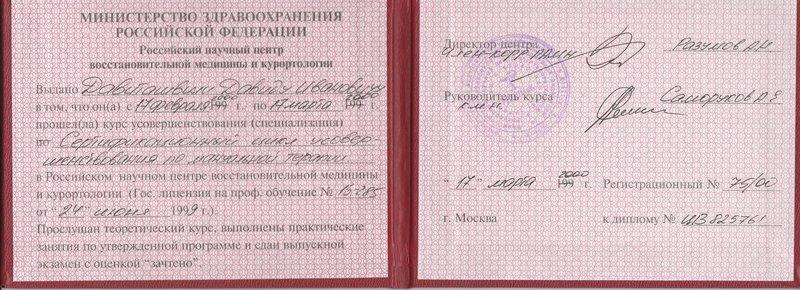 МИНИСТЕРСТВО ЗДРАВООХРАНЕНИЯ
РОССИЙСКОЙ ФЕДЕРАЦИИ
Российский научный центр
восстановительной медицины и курортологии
Выдано Давиташвили Давиду Ивановичу
в том, что он(а) с 17 февраля 2000 199 г. по 17 марта 2000 199 г.
прошел(ла) курс усовершенствования (специализации)
по Сертификационный цикл усовер-
шенствования по мануальной терапии
в Российском научном центре восстановительной медицины
и курортологии (Гос. лицензия на проф. обучение № 16-285
от "24" июня 1999 г.).
Прослушан теоретический курс, выполнены практические
занятия по утвержденной программе и сдан выпускной
экзамен с оценкой "зачтено".
Директор центра Разумов А.Н.
член-корр. РАМН
Руководитель курса Саморуков А.Е.
к.м.н.
"17" марта 2000 199 г. Регистрационный № 75/00
г. Москва к диплому № ШВ 825761